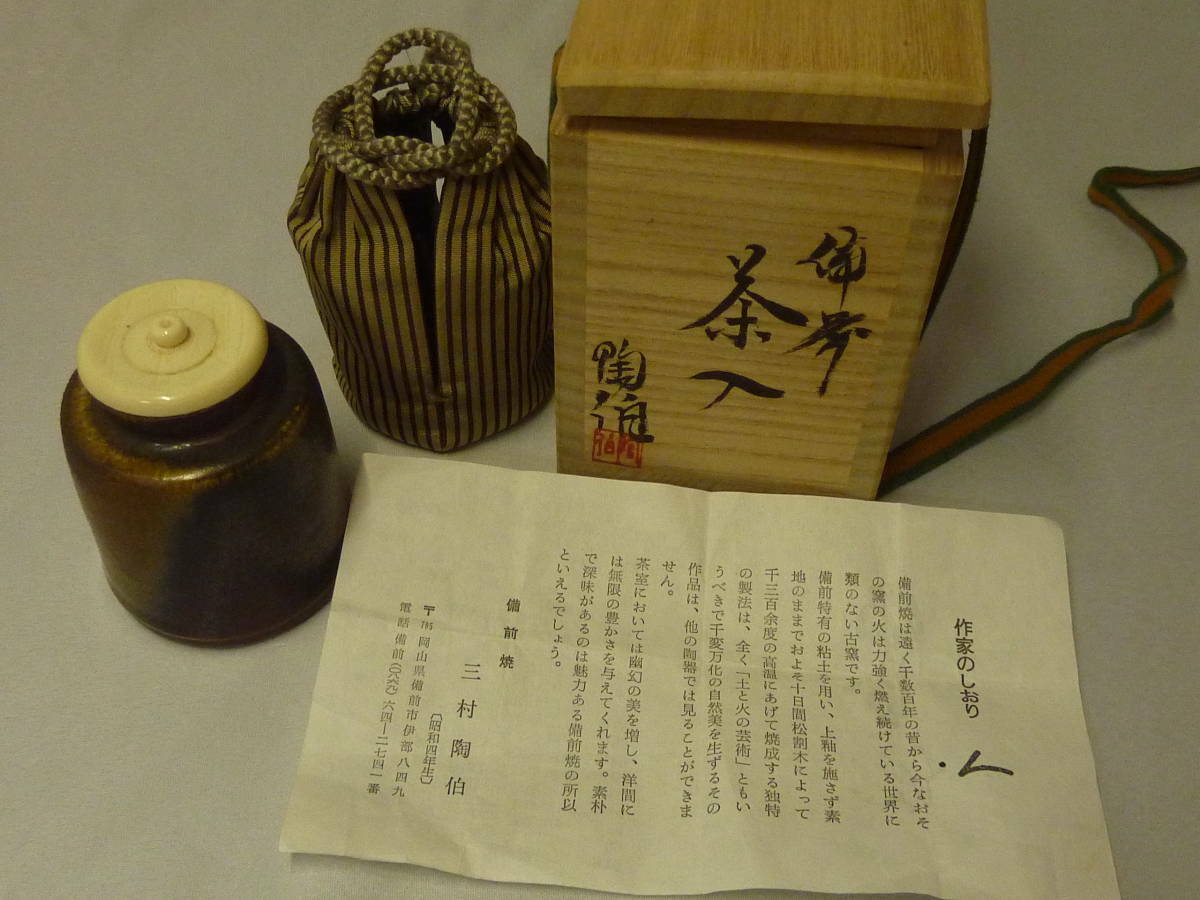 備前
茶入
陶伯
作家のしおり
備前焼は遠く千数百年の昔から今なおそ
の窯の火は力強く燃え続けている世界に
類のない古窯です。
備前特有の粘土を用い、上釉を施さず素
地のままでおよそ十日間松割木によって
千三百余度の高温にあげて焼成する独特
の製法は、全く「土と火の芸術」ともい
うべきで千変万化の自然美を生ずるその
作品は、他の陶器では見ることができま
せん。
茶室においては幽幻の美を増し、洋間に
は無限の豊かさを与えてくれます。素朴
で深味があるのは魅力ある備前焼の所以
といえるでしょう。
備前焼
三村陶伯
(昭和四年生)
〒705 岡山県備前市伊部八四九
電話 備前(〇八六六)六四―二七四一番